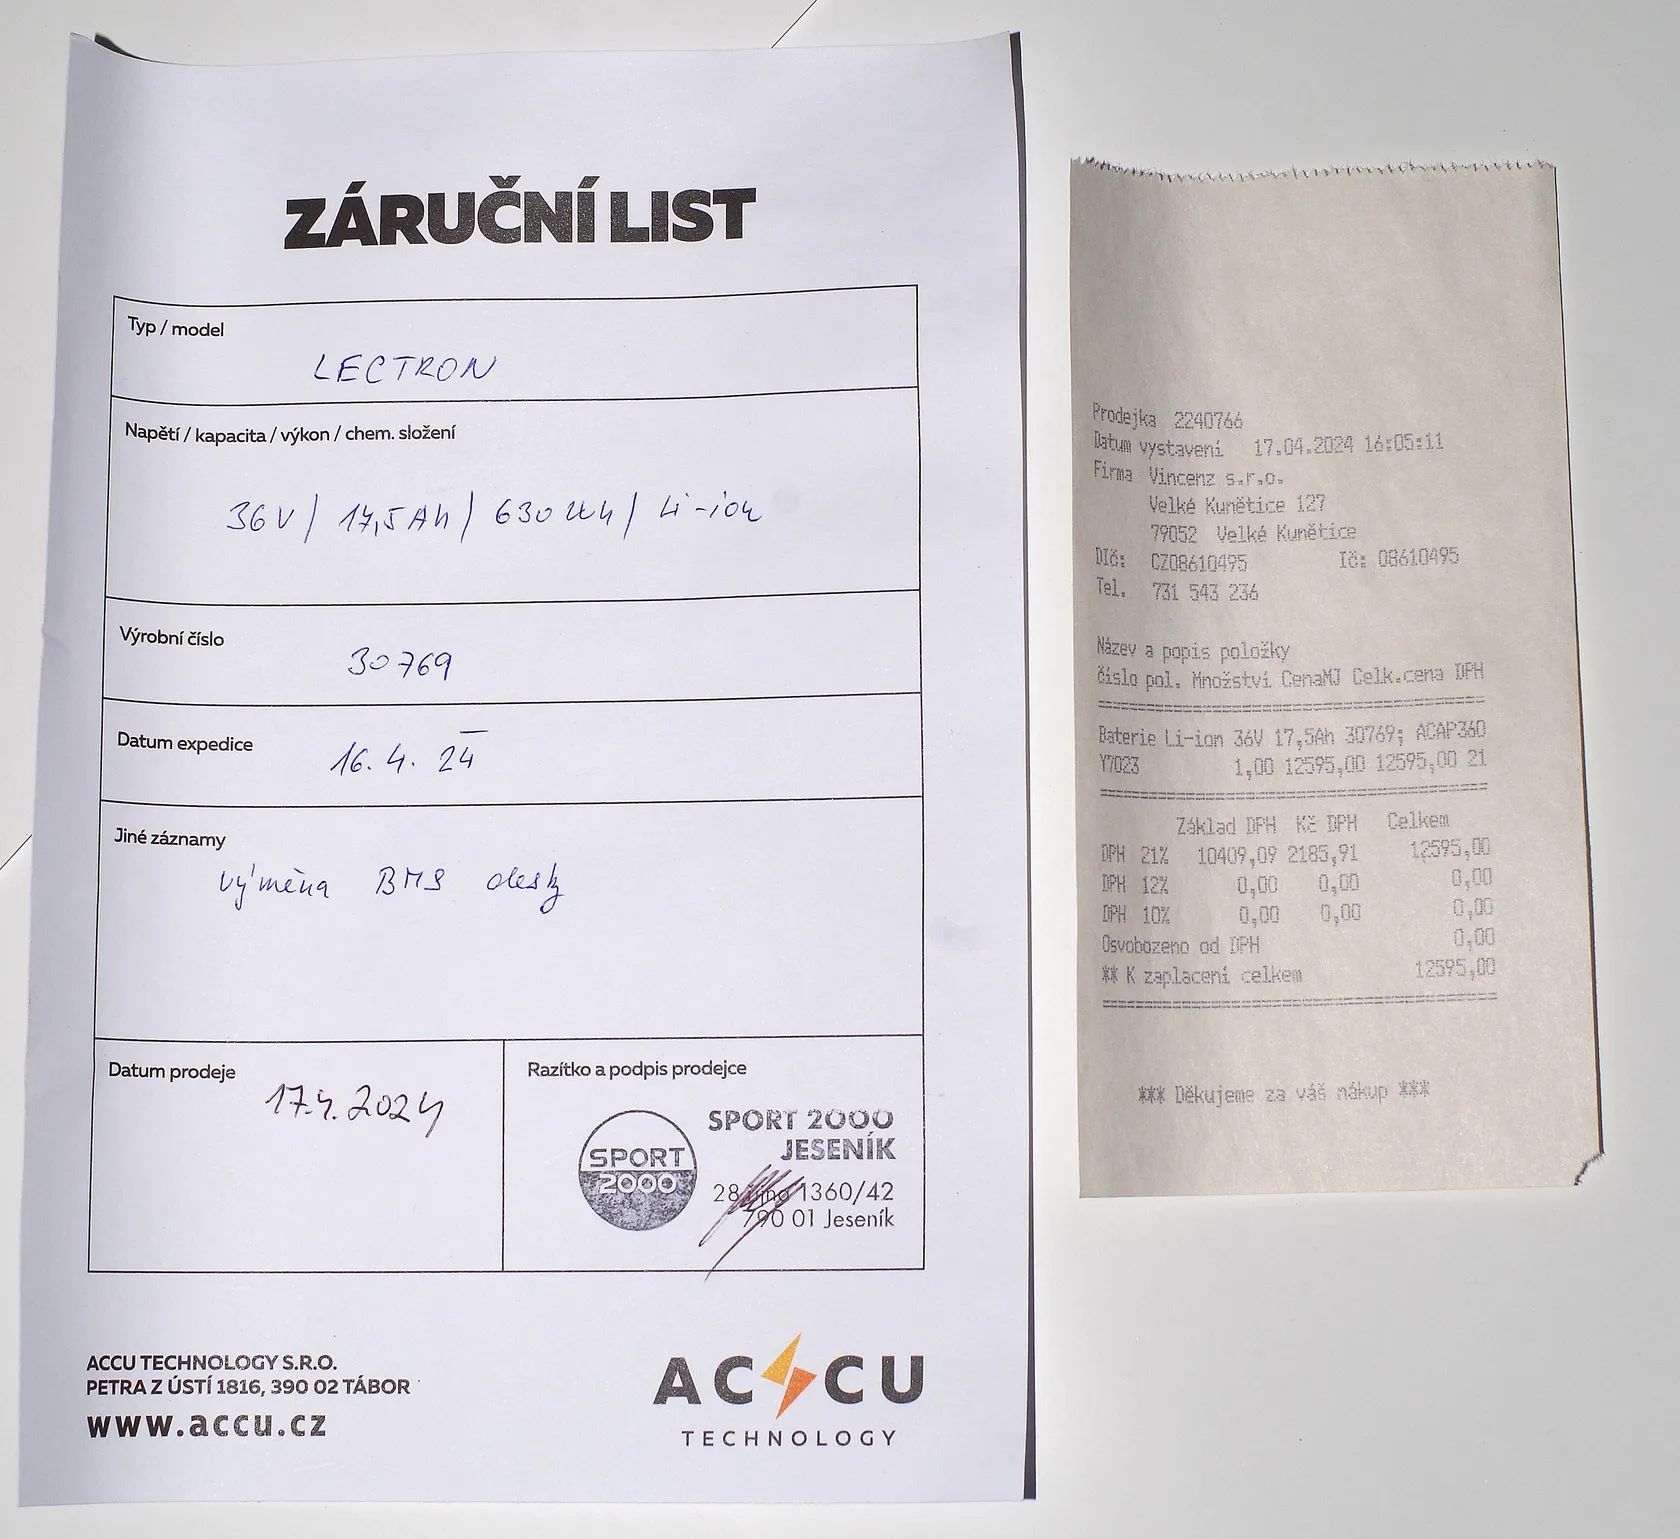 ZÁRUČNÍ LIST
Typ / model
LECTRON
Napětí / kapacita / výkon / chem. složení
36V / 17,5Ah / 630Wh / Li-ion
Výrobní číslo
30769
Datum expedice
16. 4. 24
Jiné záznamy
výměna BMS desky
Datum prodeje
17.4.2024
Razítko a podpis prodejce
SPORT 2000
SPORT 2000
JESENÍK
28. října 1360/42
790 01 Jeseník
ACCU TECHNOLOGY S.R.O.
PETRA Z ÚSTÍ 1816, 390 02 TÁBOR
www.accu.cz
ACCU
TECHNOLOGY
Prodejka 2240766
Datum vystavení 17.04.2024 16:05:11
Firma Vincenz s.r.o.
Velké Kunětice 127
79052 Velké Kunětice
DIč: CZ08610495 Ič: 08610495
Tel. 731 543 236
Název a popis položky
číslo pol. Množství CenaMJ Celk.cena DPH
Baterie Li-ion 36V 17,5Ah 30769; ACAP360
Y7023 1,00 12595,00 12595,00 21
Základ DPH Kč DPH Celkem
DPH 21% 10409,09 2185,91 12595,00
DPH 12% 0,00 0,00 0,00
DPH 10% 0,00 0,00 0,00
Osvobozeno od DPH 0,00
** K zaplacení celkem 12595,00
*** Děkujeme za váš nákup ***